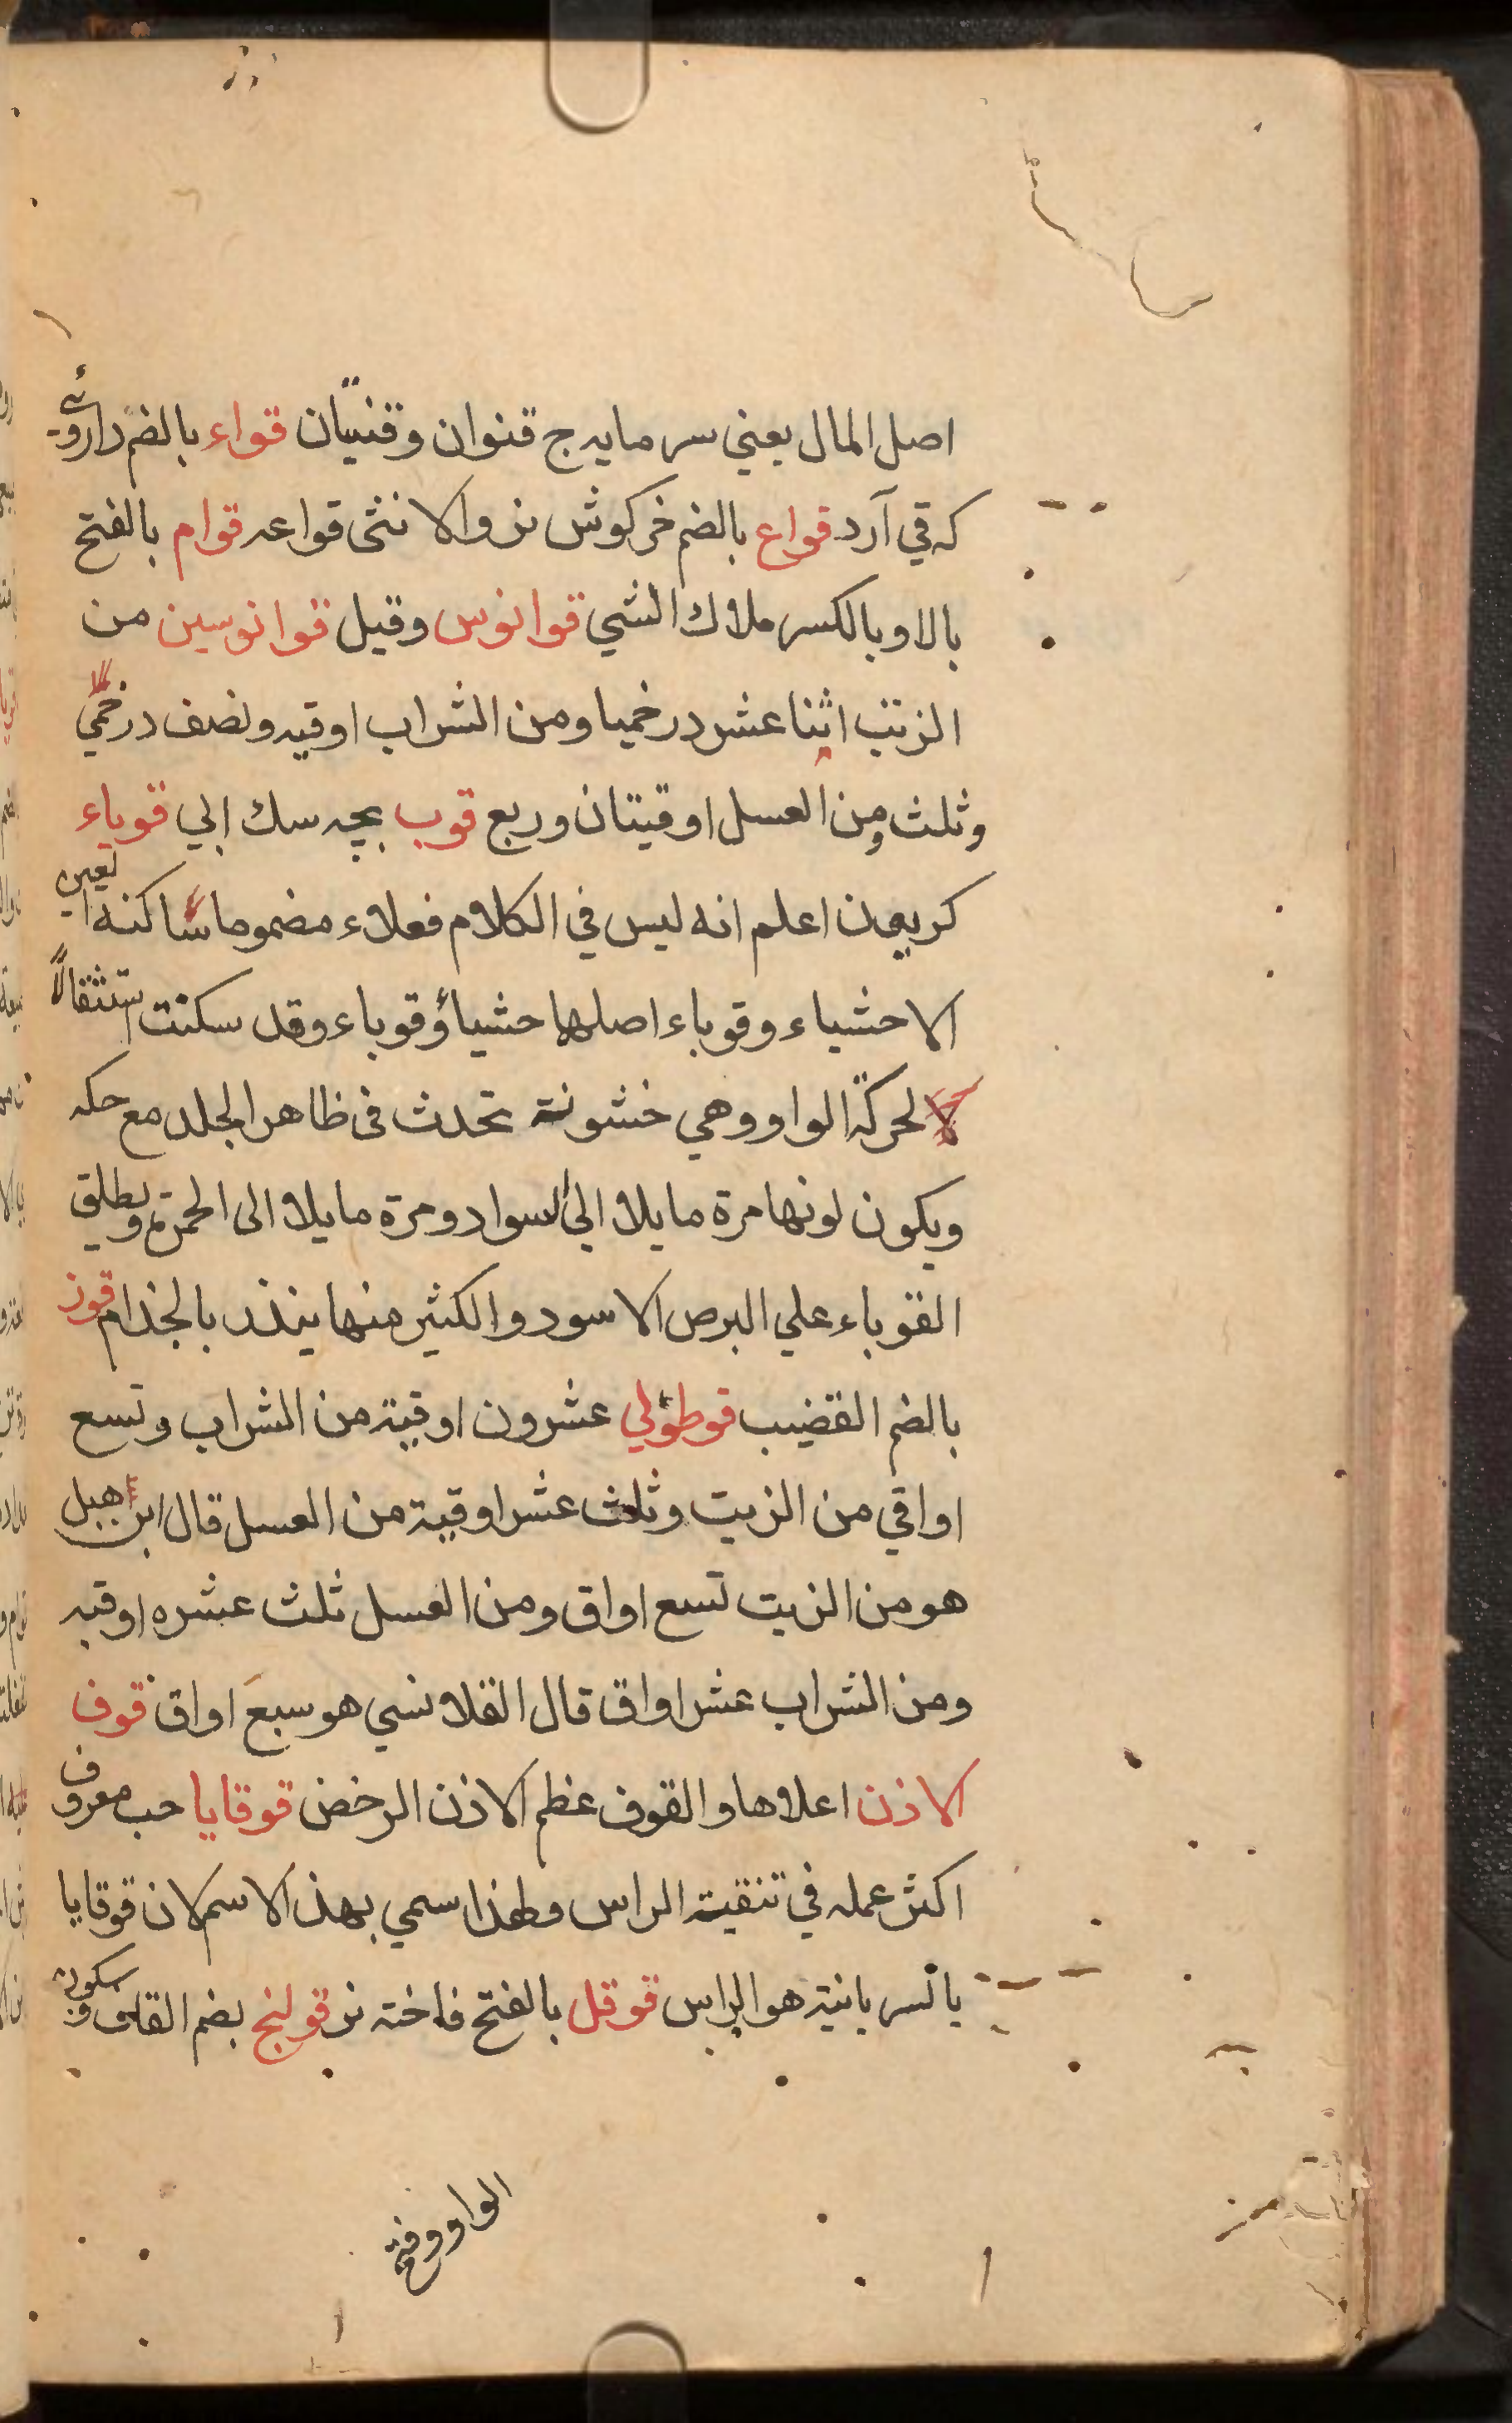 اصل المال يعني سرمايه ج قنوان وقنيّان قواء بالضم داروئي
كه قي آرد قواع بالضم خركوش نر والانثى قواعه قوام بالفتح
بالا وبالكسر ملاك الشي قوانوس وقيل قوانوسين من
الزيت اثنا عشر درخميا ومن الشراب اوقيه ونصف درخمي
وثلث ومن العسل اوقيتان وربع قوب بچه سك ابي قوباء
كريون اعلم انه ليس في الكلام فعلاء مضموما ساكنه العين
الا حشياء وقوباء اصلها حشياؤ قوباء وقد سكنت استثقالاً
لا لحركة الواو وهي خشونة تحدث فى ظاهر الجلد مع حكه
ويكون لونها مرة مايلا الى السواد ومرة مايلا الى الحمرة ويطلق
القوباء علي البرص الاسود والكثير منها ينذر بالجذام قوز
بالضم القضيب قوطولي عشرون اوقية من الشراب وتسع
اواقي من الزيت وثلث عشر اوقية من العسل قال ابن هبل
هو من الزيت تسع اواق ومن العسل ثلث عشره اوقيه
ومن الشراب عشر اواق قال القلانسي هو سبعَ اواق قوف
الاذن اعلاها والقوف عظم الاذن الرخض قوقايا حب معروف
اكثر عمله في تنقية الراس ولهذا سمي بهذ الاسم لان قوقايا
بالسريانية هو الراس قوقل بالفتح فاخته نر قولنج بضم القاف وسكون
الواو وفتح